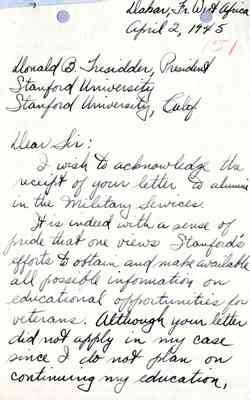 Dakar, Fr. W. Africa
April 2, 1945
151
Donald B. Tresidder, President
Stanford University
Stanford University, Calif
Dear Sir:
I wish to acknowledge the
receipt of your letter to alumni
in the Military Services.
It is indeed with a sense of
pride that one views Stanford's
efforts to obtain and make available
all possible information on
educational opportunities for
veterans. Although your letter
did not apply in my case
since I do not plan on
continuing my education,